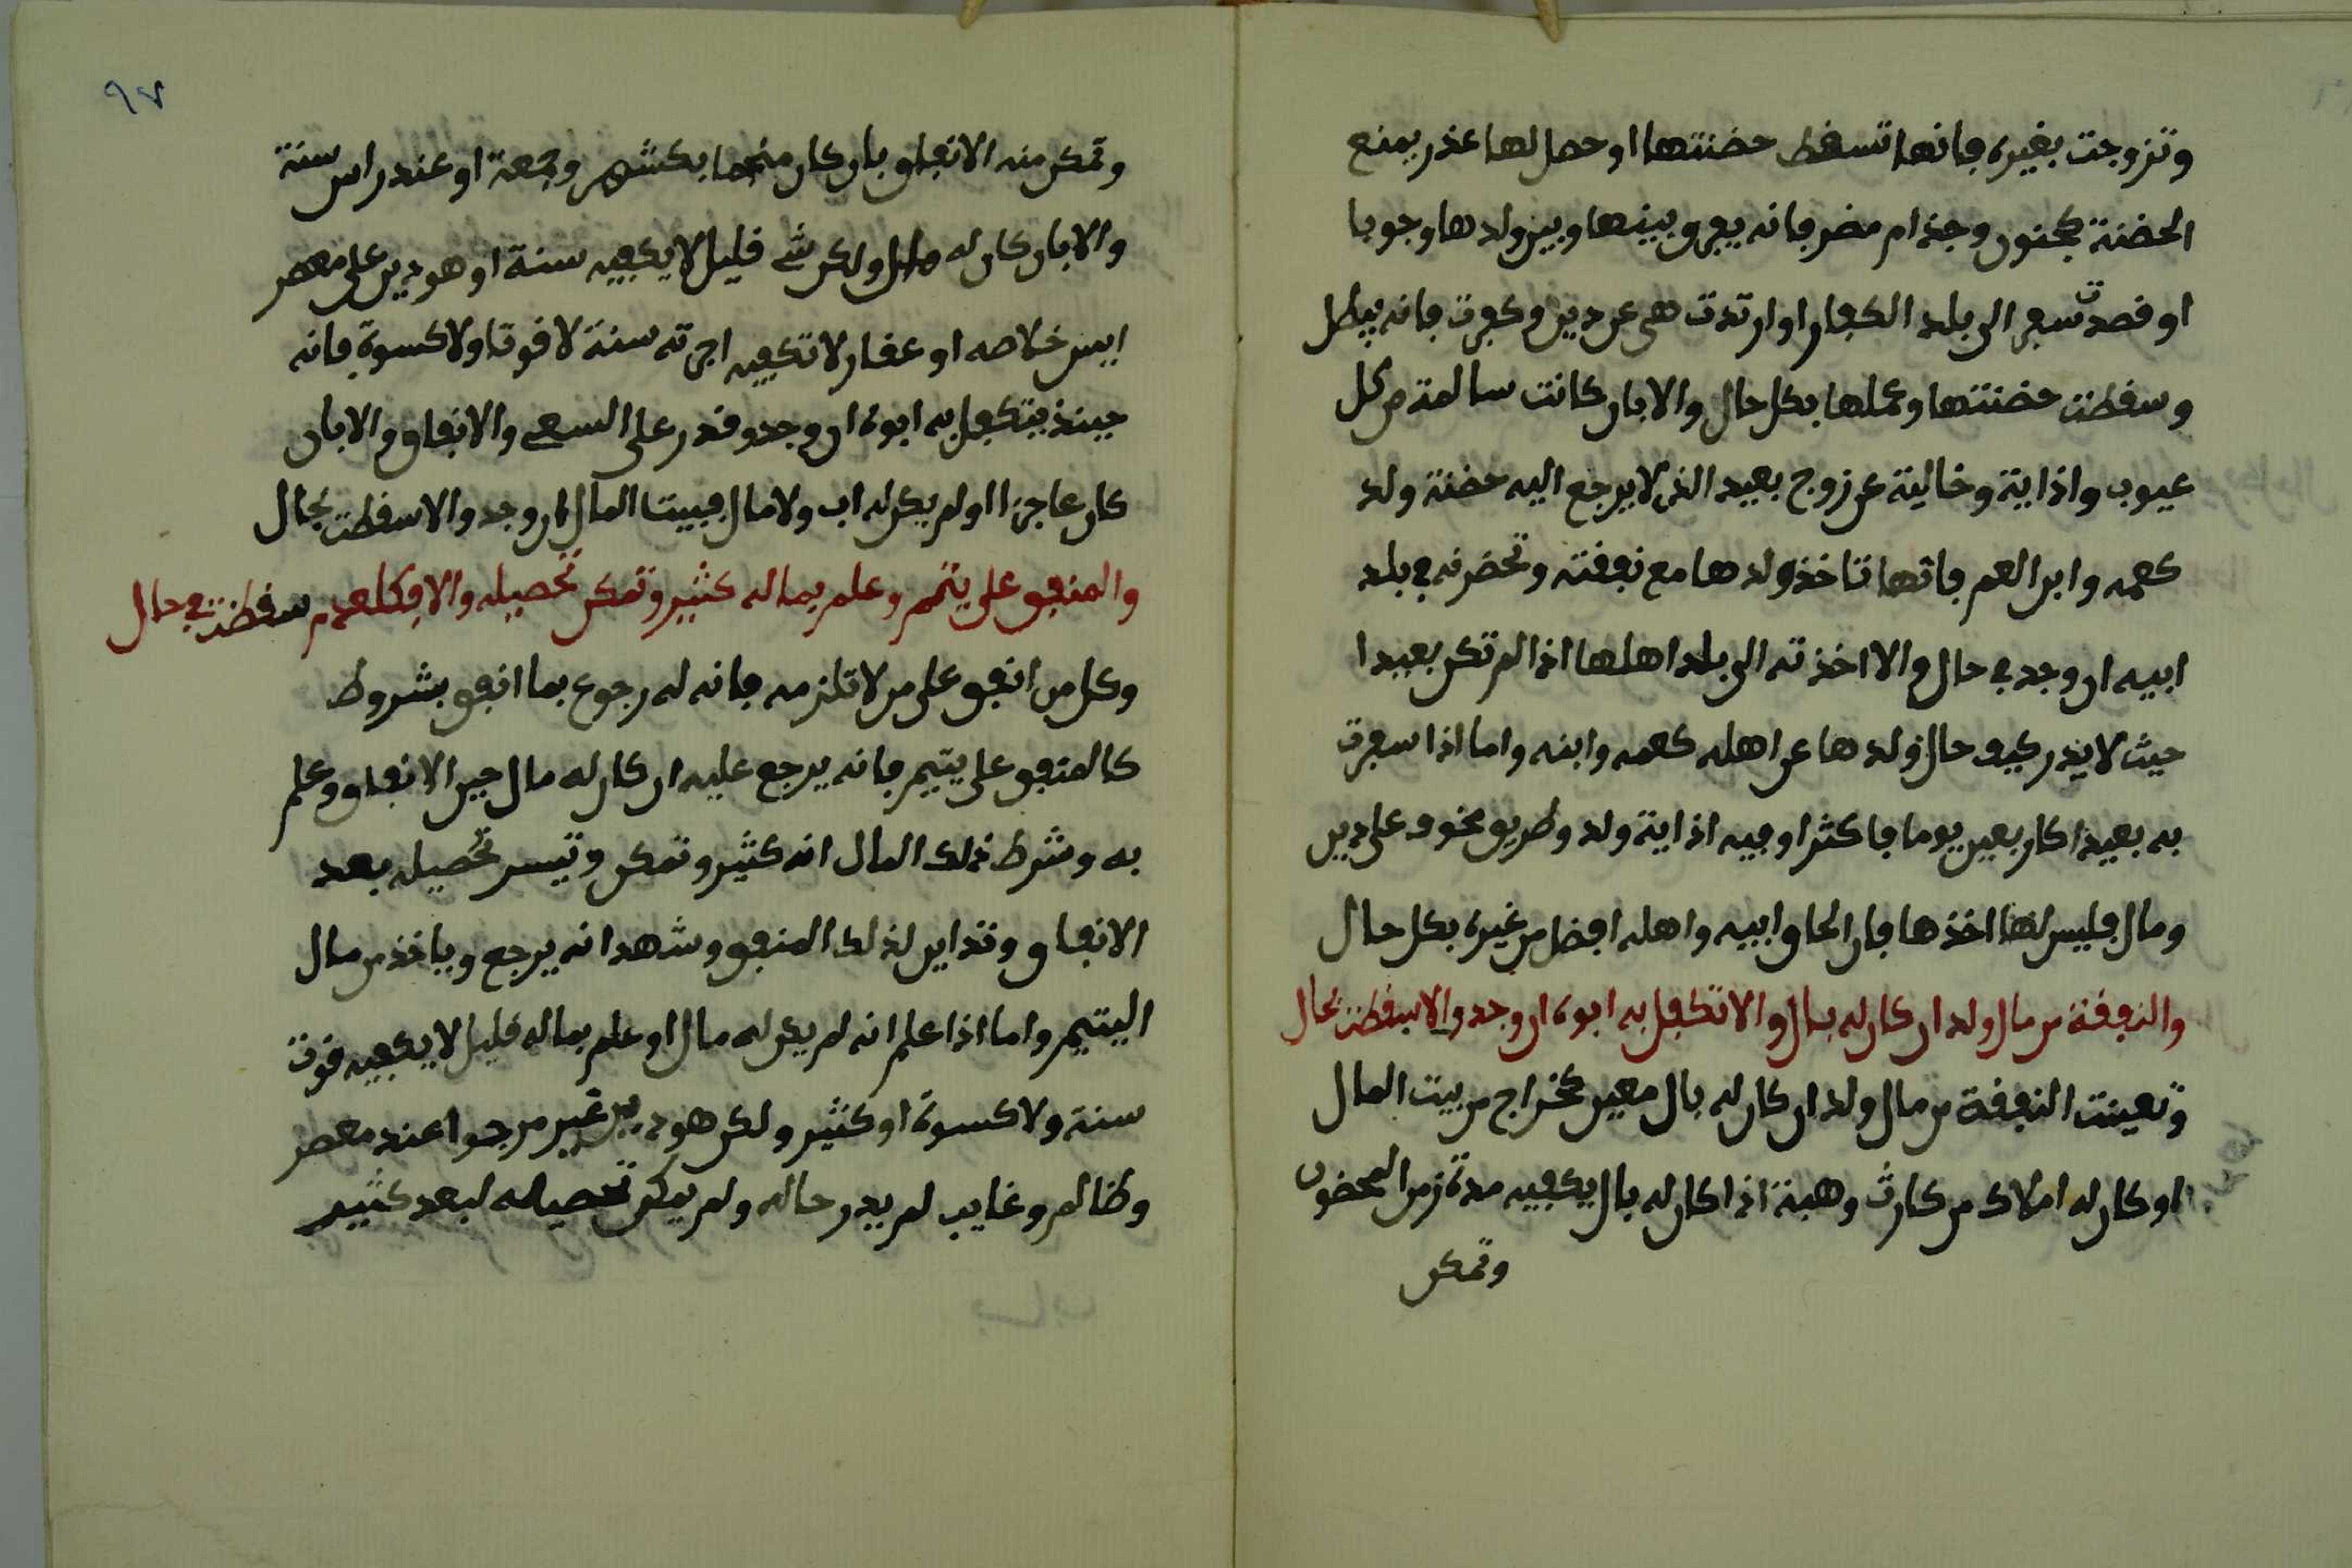 وتزوجت بغيره فانها تسقط حضنتها او حصل لها عذر يمنع
الحضنة كجنون وجذام مضر فانه يفرق بينها وبين ولدها وجوبا
او قصدت سفر الى بلد الكفار او ارتدت هى عن دين وكفرت فانه يبطل
وسقطت حضنتها وعملها بكل حال والا بان كانت سالمة من كل
عيوب واذاية وخالية عن زوج بعيد الذى لا يرجع اليه حضنة ولد
كعمه وابن العم فانها تاخذ ولدها مع نفقته وتحضرنه في بلد
ابيه ان وجد في حال والا اخذته الى بلد اهلها اذا لم تكن بعيدا
حيث لا يدر كيف حال ولدها عن اهله كعمه وابنه واما اذا سفرت
به بعيدا كاربعين يوما فاكثر او فيه اذاية ولد وطريق مخوف على دين
ومال فليس لها اخذها فان الحاق ابيه واهله افضل من غيره بكل حال
والنفقة من مال ولد ان كان له بال والا تكفل به ابوه ان وجد والا سقطت بحال
وتعينت النفقة من مال ولد ان كان له بال معين كخراج من بيت المال
او كان له املاك من كارث وهبة اذا كان له بال يكفيه مدة زمن المحضون
وتمكن
٩٧
وتمكن منه الانفاق بان كان منجما بكشهر وجمعة او عند راس سنة
والا بان كان له مال ولكن شے قليل لا يكفيه سنة او هو دين على معصر
ايس خلاصه او عقار لا تكفيه اجرته سنة لا قوتا ولا كسوة فانه
حينذ يتكفل به ابوه ان وجد وقدر على السعي والانفاق والا بان
كان عاجزا او لم يكن له اب ولا مال فبيت المال ان وجد والا سقطت بحال
والمنفق على يتم وعلم بماله كثير وتمكن تحصيله والا فكلعدم سقطت في حال
وكل من انفق على من لا تلزمه فانه له رجوع بما انفق بشروط
كالمنفق على يتيم فانه يرجع عليه ان كان له مال حين الانفاق وعلم
به وشرط ذلك المال انه كثير وتمكن وتيسر تحصيله بعد
الانفاق وتداين لذلك المنفق وشهد انه يرجع وياخذ من مال
اليتيم واما اذا علم انه لم يكن له مال او علم بماله قليل لا يكفيه قوت
سنة ولا كسوة او كثير ولكن هو دين غير مرجوا عند معصر
وظالم وغايب لم يدر حاله ولم يمكن تحصيله لبعد كثير